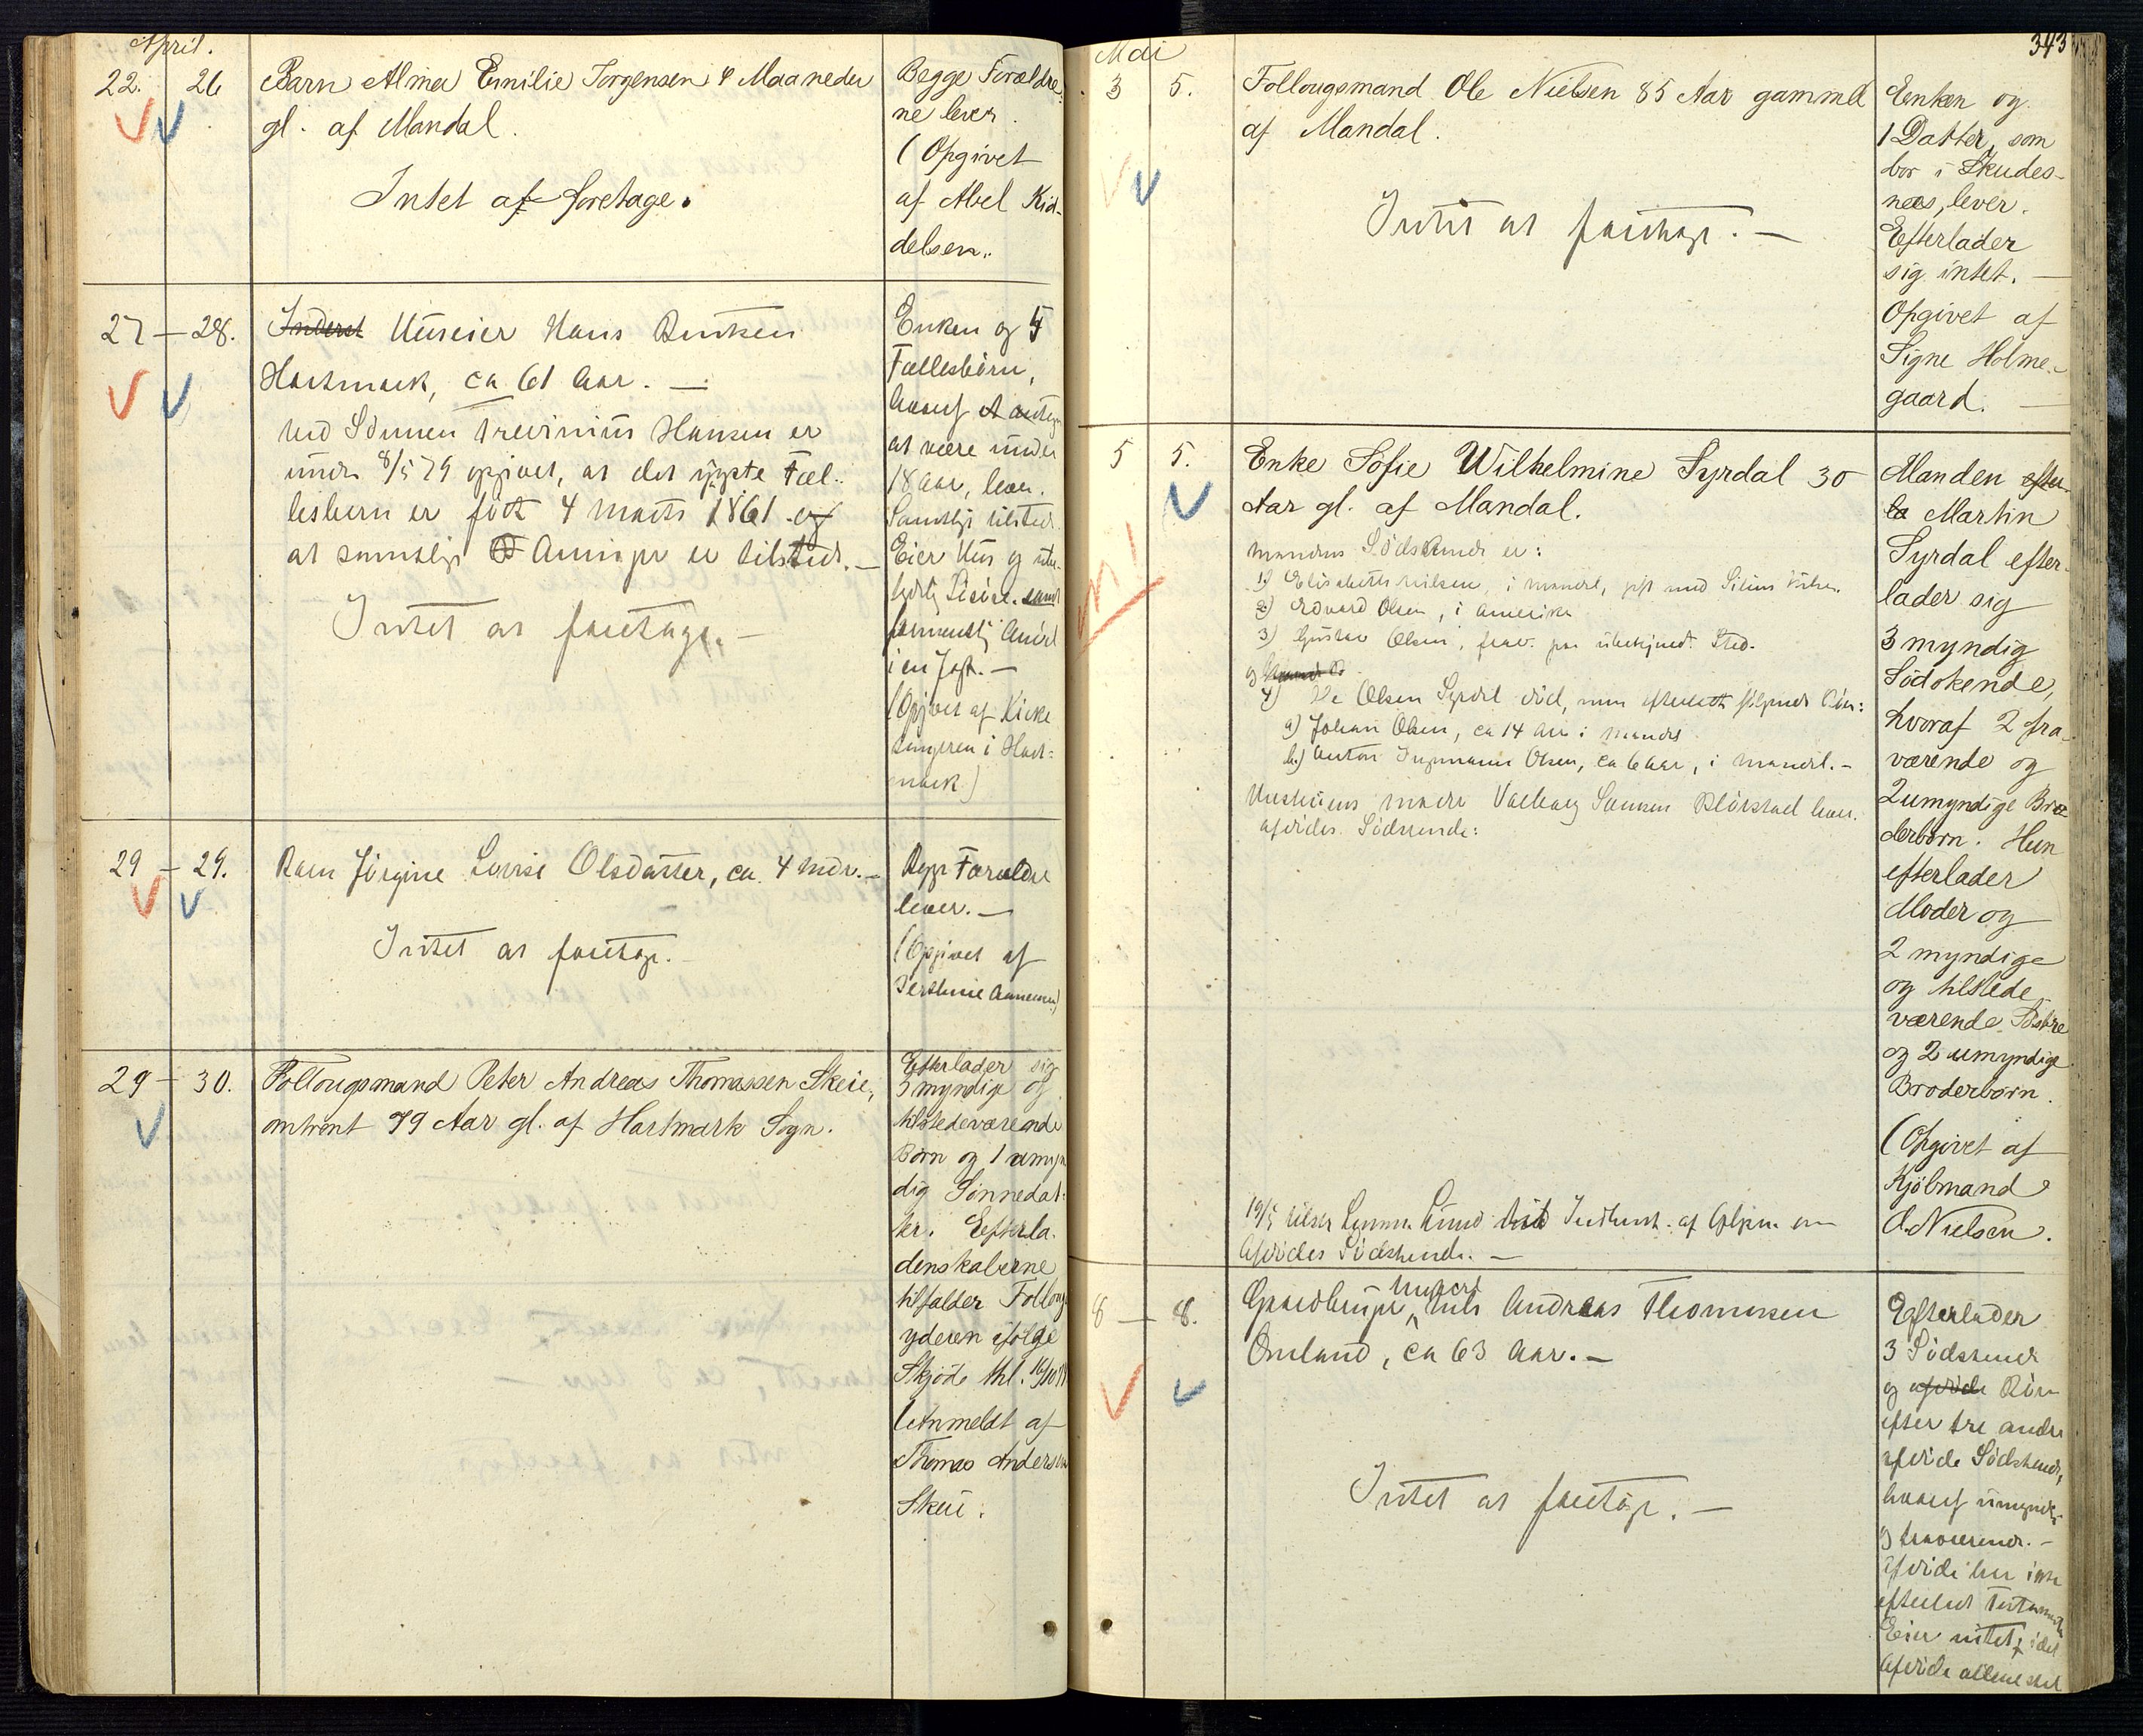 April.
22. 26 Barn Alma Emilie Jørgensen 4 Maaneder
gl. af Mandal.
Intet at foretage.
Begge Forældre-
ne lever.
(Opgivet
af Abel Kid-
delsen.
27 — 28. Inderst Huseier Hans Bentsen
Hartmark, ca 61 Aar. —
Ved Sønnen Hansen er
under 8/5 79 opgivet, at det yngste Fæl-
lesbarn er født 4 Marts 1861 og
at samtlige Arvinger er tilstede. —
Intet at foretage. —
Enken og 4
Fællesbørn,
hvoraf et antages
at være under
18 Aar, lever.
Samtlige tilstede.
Eier Hus og ube-
tydelig Løsøre samt
formentlig Andel
i en Jagt. —
(Opgivet af Kirke-
sangeren i Hart-
mark)
29 — 29. Barn Jørgine Lovise Olsdatter, ca. 4 Mdr. —
Intet at foretage. —
Begge Forældre
lever. —
(Opgivet af
29 — 30. Follougsmand Peter Andreas Thomassen Skeie,
omtrent 79 Aar gl. af Hartmark Sogn.
Efterlader sig
3 myndige og
tilstedeværende
Børn og 1 umyn
dig Sønnedat-
ter. Efterla-
denskaberne
tilfalder Follougs
yderen ifølge
Skjøde thl.
(Anmeldt af
Thomas Andersen
Skeie.
343
Mai
3 5. Follougsmand Ole Nielsen 85 Aar gammel
af Mandal.
Intet at foretage. —
Enken og
1 Datter, som
bor i Skudes-
næs, lever.
Efterlader
sig intet. —
Opgivet af
Signe Holme-
gaard. —
5 5. Enke Sofie Wilhelmine Syrdal 30
Aar gl. af Mandal.
Mandens Sødskende er:
1) Elisabeth Nilsen, i Mandal, gift med Nilsen.
2) Edvard Olsen, i Amerika
3) Gustav Olsen, frav. paa ubekjendt Sted.
og
4) Ole Olsen Syrdal død, men efterladt følgende Børn:
a) Johan Olsen, ca 14 Aar i Mandal
b.) Anton Ingmann Olsen, ca 6 Aar, i Mandal. —
Hustruens Moder Valborg lever.
Afdødes Sødskende:
19/5 tilskr. Lund Indberet. af Oplysn. om
Afdødes Sødskende. —
Manden efter-
la Martin
Syrdal efter-
lader sig
3 myndig
Sødskende,
hvoraf 2 fra-
værende og
2 umyndige Bro-
derbørn. Hun
efterlader
Moder og
2 myndige
og tilstede
værende Søstre
og 2 umyndige
Broderbørn.
(Opgivet af
Kjøbmand
A. Nielsen.
8 — 8. Gaardbruger, ugift Nils Andreas Thomassen
Omland, ca 63 Aar. —
Intet at foretage. —
Efterlader
3 Sødskende
og afdøde Børn
efter tre andre
afdøde Sødskende,
hvoraf umyndige
og fraværende. —
Afdøde har ikke
efterladt Testament.
Eier intet, idet
Afdøde